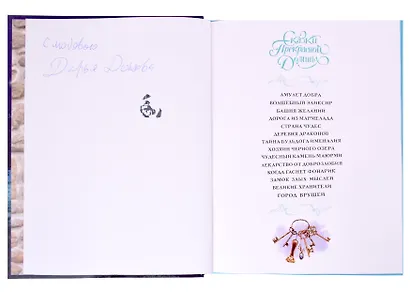 с любовью
Дарья Донцова
Сказки
Прекрасной
Долины
АМУЛЕТ ДОБРА
ВОЛШЕБНЫЙ ЭЛИКСИР
БАШНЯ ЖЕЛАНИЙ
ДОРОГА ИЗ МАРМЕЛАДА
СТРАНА ЧУДЕС
ДЕРЕВНЯ ДРАКОНОВ
ТАЙНА БУЛЬДОГА ИМЕНАЛИЯ
ХОЗЯИН ЧЕРНОГО ОЗЕРА
ЧУДЕСНЫЙ КАМЕНЬ МАЮРМИ
ЛЕКАРСТВО ОТ ДОБРОЛЮБИЯ
КОГДА ГАСНЕТ ФОНАРИК
ЗАМОК ЗЛЫХ МЫСЛЕЙ
ВЕЛИКИЕ ХРАНИТЕЛИ
ГОРОД ВРУШЕЙ